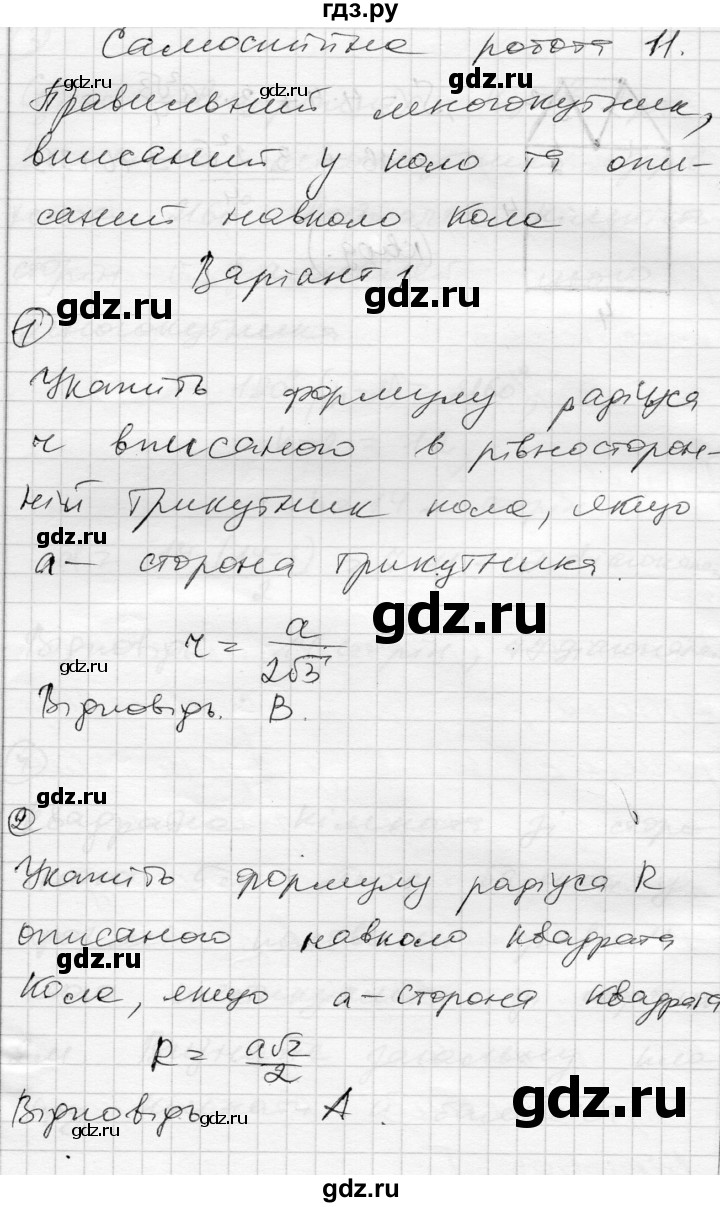 гдз.ру
Самостійна робота 11.
Правильний многокутник,
вписаний у коло та опи-
саний навколо кола
Варіант 1
gdz.ru
1
Укажіть формулу радіуса
r вписаного в рівносторон-
ній трикутник кола, якщо
a — сторона трикутника.
r = a / 2√3
Відповідь. В.
2
Укажіть формулу радіуса R
описаного навколо квадрата
кола, якщо a — сторона квадрата
R = a√2 / 2
Відповідь А.
gdz.ru
гдз.ру